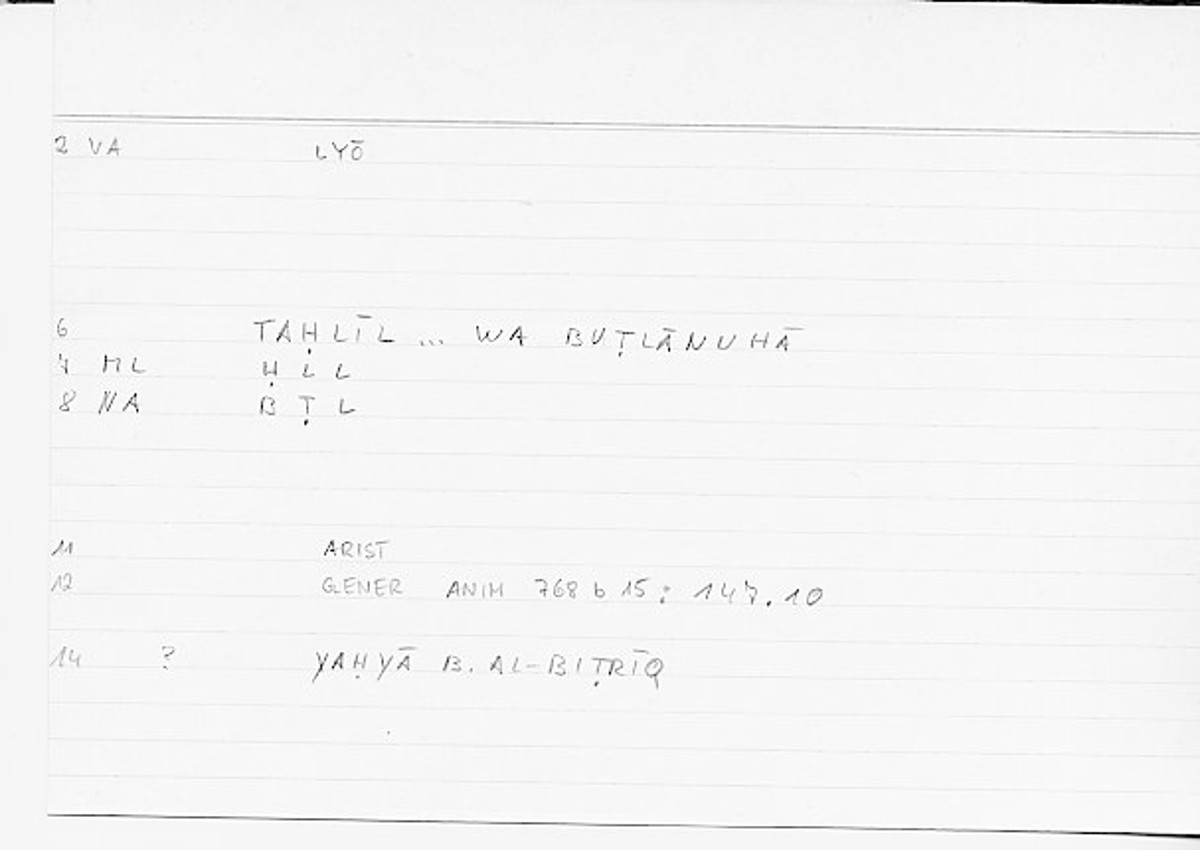 2 VA LYŌ
6 TAḤLĪL ... WA BUṬLĀNUHĀ
7 ML Ḥ L L
8 NA B Ṭ L
11 ARIST
12 GENER ANIM 768 b 15 : 147.10
14 ? YAḤYĀ B. AL-BIṬRĪQ